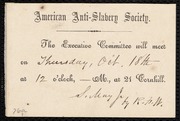 American Anti-Slavery Society.
The Executive Committee will meet
on Thursday, Oct. 18th
at 12 o'clock, — M., at 21 Cornhill.
S. May Jr.
by R. F. W.